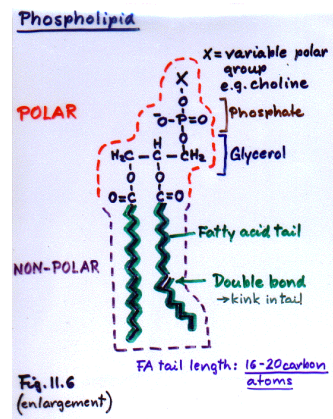 Phospholipid
X = variable polar
group
e.g. choline
X
O
POLAR
⁻O-P=O
Phosphate
O
H
H₂C-C-CH₂
Glycerol
O O
O=C C=O
Fatty acid tail
NON-POLAR
Double bond
→kink in tail
FA tail length: 16-20 carbon
atoms
Fig. 11.6
(enlargement)